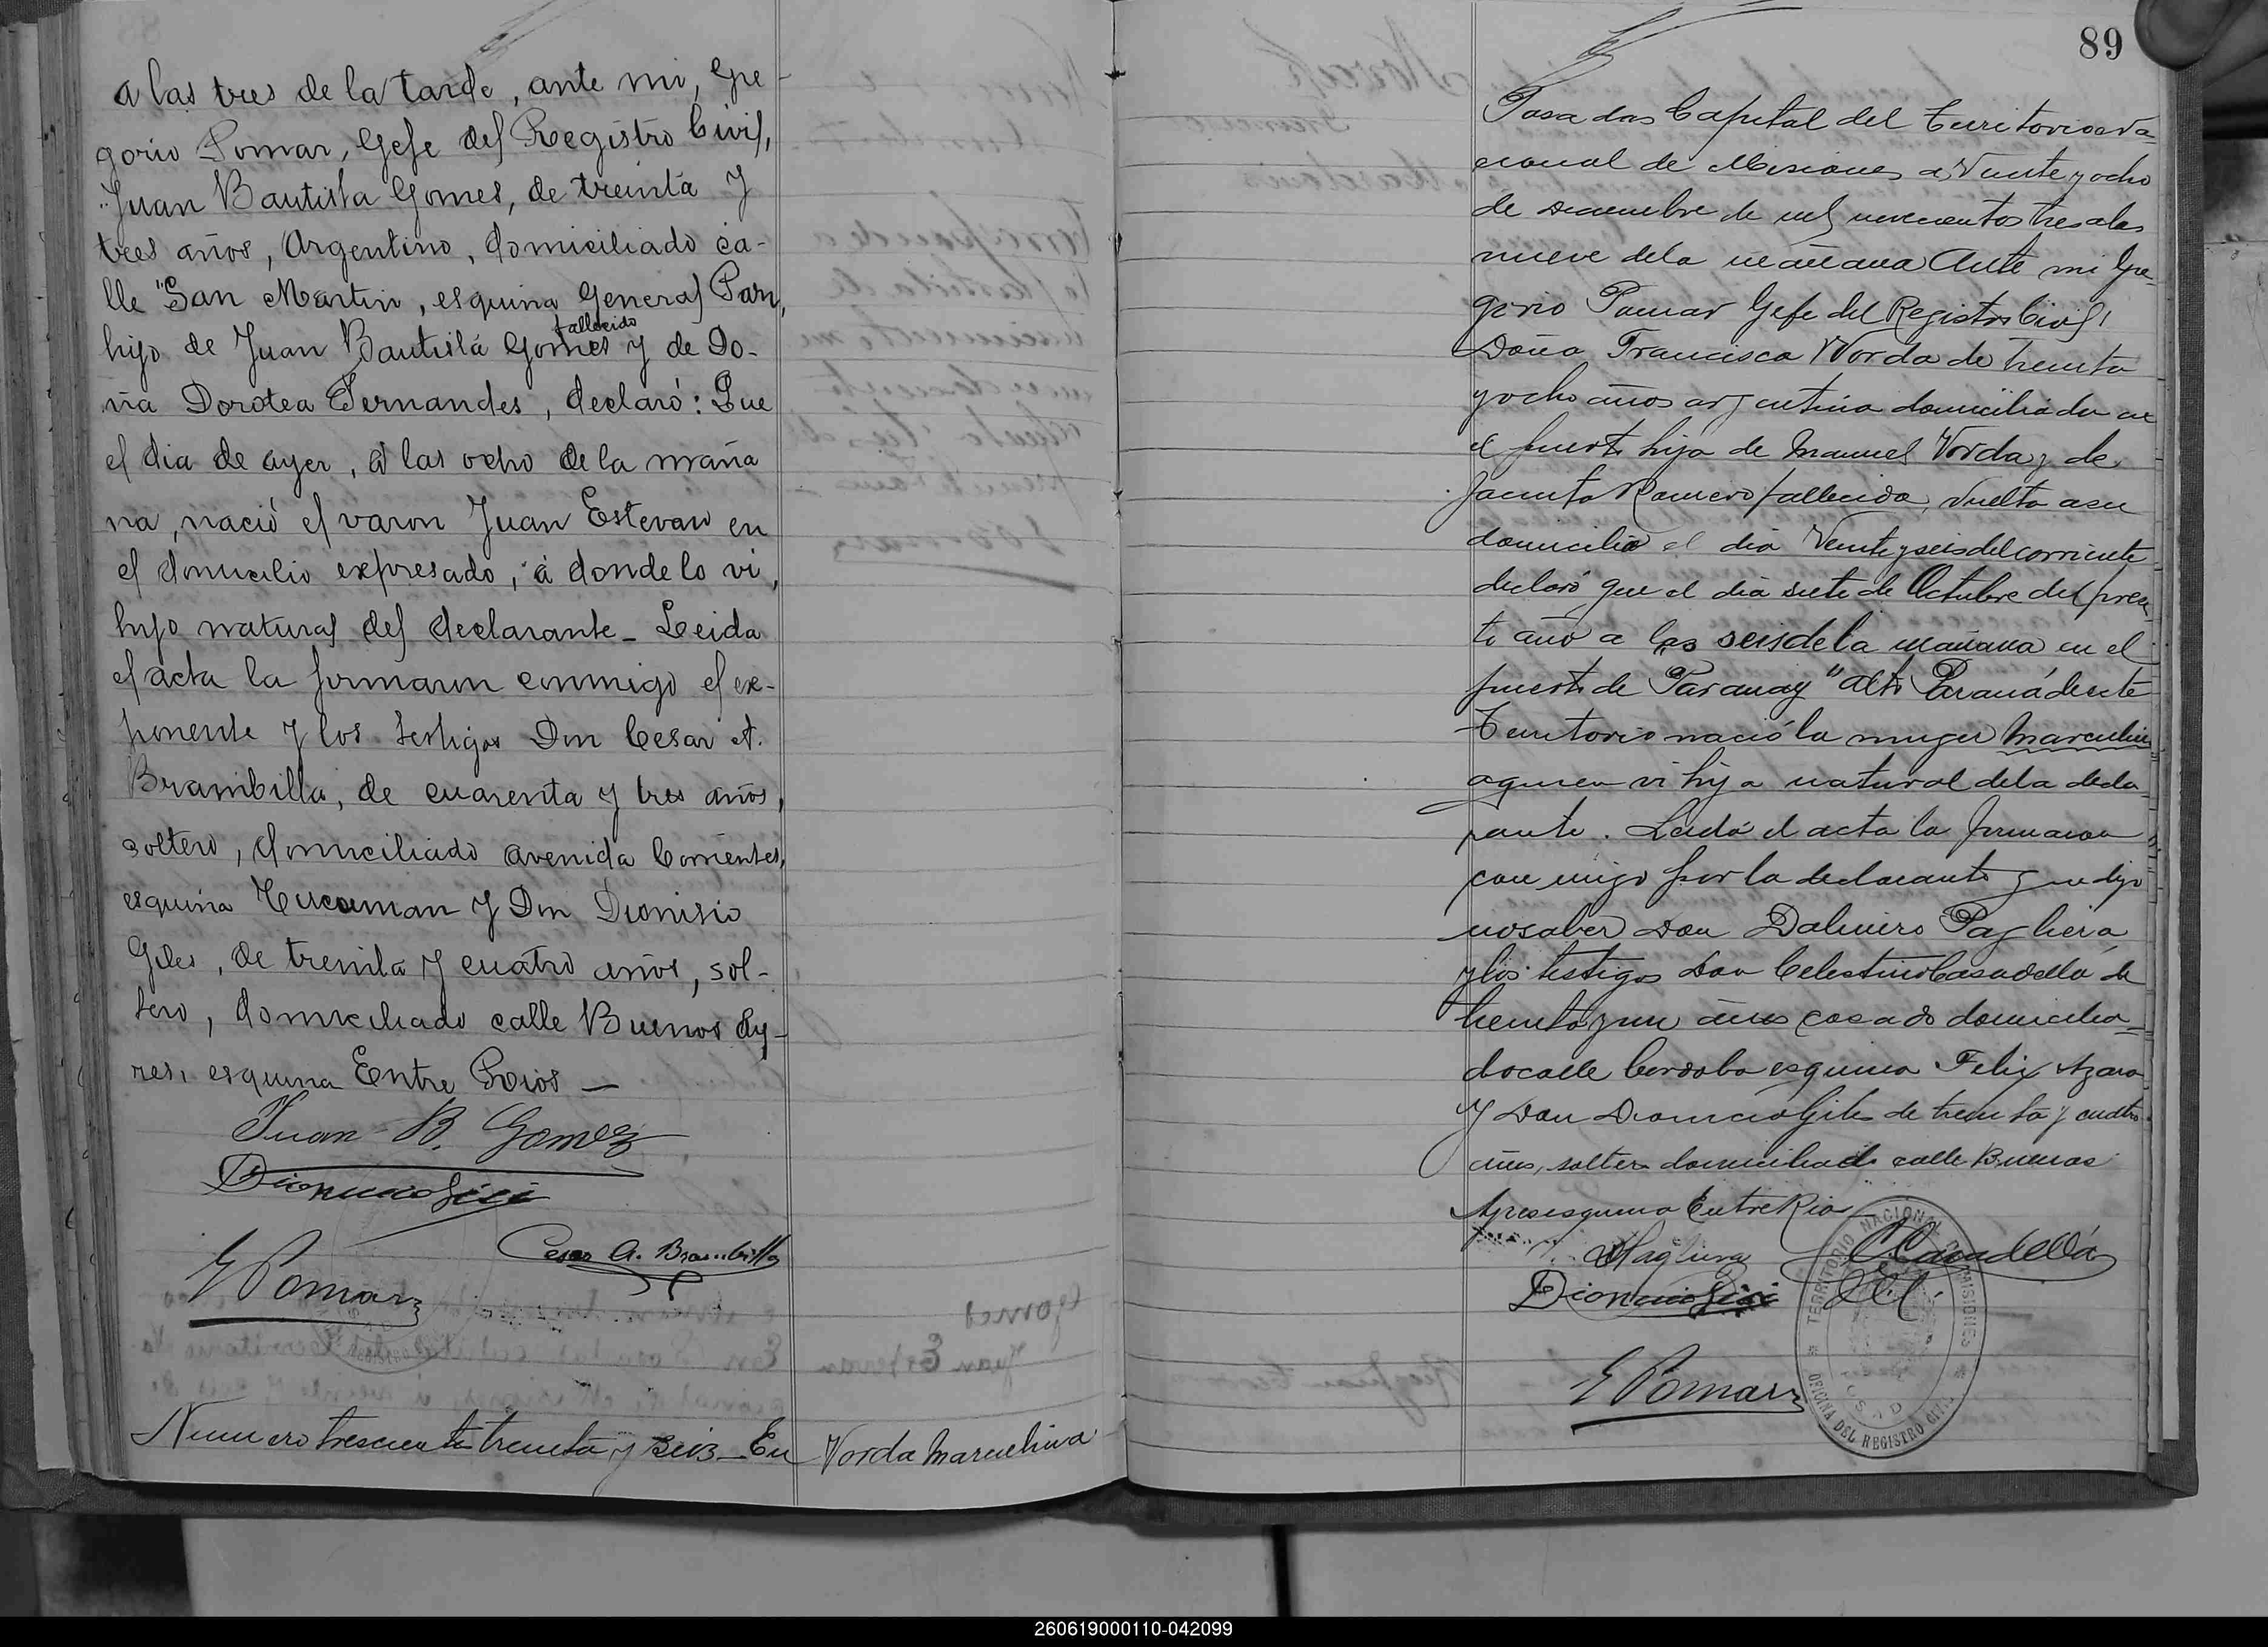 a las tres de la tarde, ante mi, Gre
gorio Pomar, Gefe del Registro Civil,
Juan Bautista Gomes, de treinta y
tres años, Argentino, domiciliado ca-
lle "San Martin, esquina General Paz,
hijo de Juan Bautista Gomes fallecido y de Do-
ña Dorotea Fernandes, declaró: Que
el dia de ayer, á las ocho de la maña
na, nació el varon Juan Estevan en
el domicilio expresado, á donde lo vi,
hijo natural del declarante - Leida
el acta la firmaron conmigo el ex-
ponente y los testigos Don Cesar A.
Brambilla, de cuarenta y tres años,
soltero, domiciliado avenida Corrientes,
esquina Tucuman y Don Dionisio
Giles, de treinta y cuatro años, sol-
tero, domiciliado calle Buenos Ay-
res, esquina Entre Rios —
Juan B. Gomez
Dionicio Giles
Cesar A. Brambilla
G Pomar
Numero trescientos treinta y seis - En
Vorda Marcelina
89
Posadas Capital del Territorio Na-
cional de Misiones a Veinte y ocho
de Diciembre de mil novecientos tres a las
nueve dela mañana Ante mi Gre-
gorio Pomar Gefe del Registro Civil
Doña Francisca Vorda de treinta
y ocho años argentina domiciliada en
el puerto hija de Manuel Vorda y de
Jacinta Romero fallecida, vuelta a su
domicilio el dia Veinte y seis del corriente
declaró que el dia siete de Octubre del presen
te año a las seis de la mañana en el
puerto de "Paranay" alto Paraná de este
Territorio nació la muger Marcelina
aquien vi hija natural dela decla-
rante. Leida el acta la firmaron
con migo por la declarante que dijo
no saber Don Dalmiro Pagliera
y los testigos Don Celestino Casadellá de
treinta y un años casado domicilia-
do calle Cordoba esquina Felix Azara
Y Don Dionicio Giles de treinta y cuatro
años, soltero domiciliado calle Buenos
Ayres esquina Entre Rios
DPagliera
CCasadellá
Dionicio Giles
G Pomar
TERRITORIO NACIONAL DE MISIONES
OFICINA DEL REGISTRO CIVIL
260619000110-042099